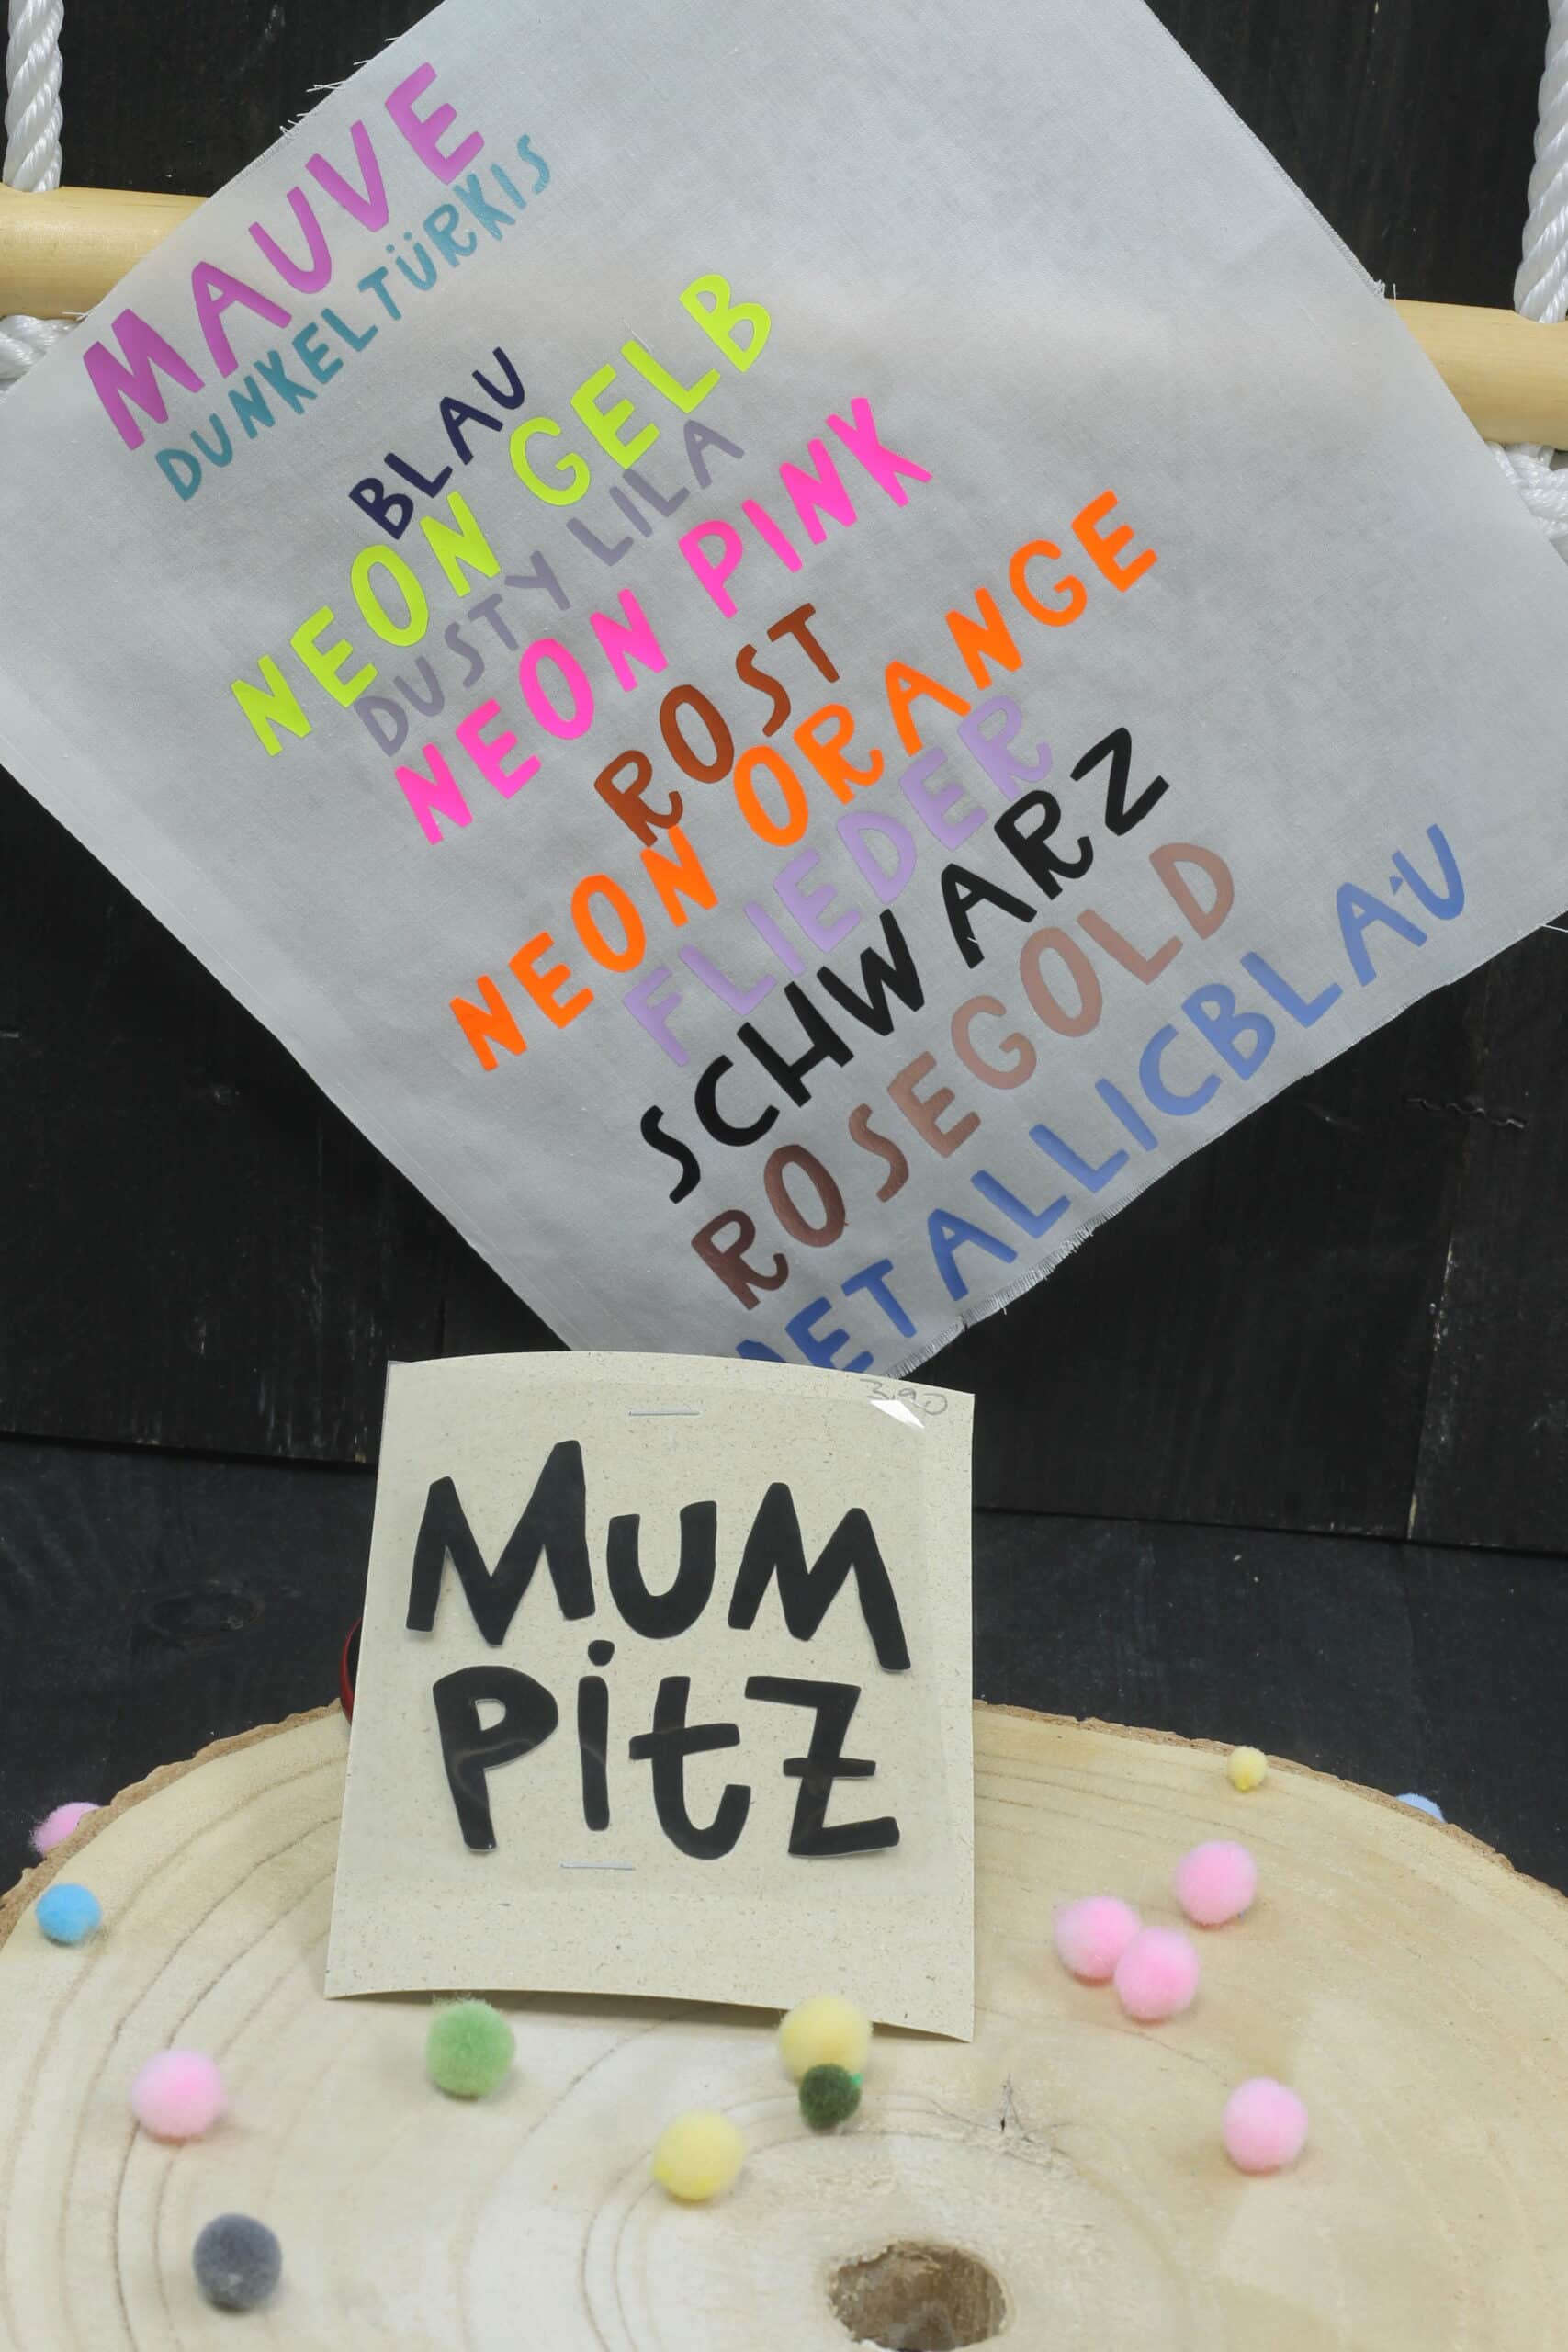 MAUVE
DUNKELTÜRKIS
BLAU
NEON GELB
DUSTY LILA
NEON PINK
ROST
NEON ORANGE
FLIEDER
SCHWARZ
ROSEGOLD
METALLICBLAU
3,90
MUM
PitZ